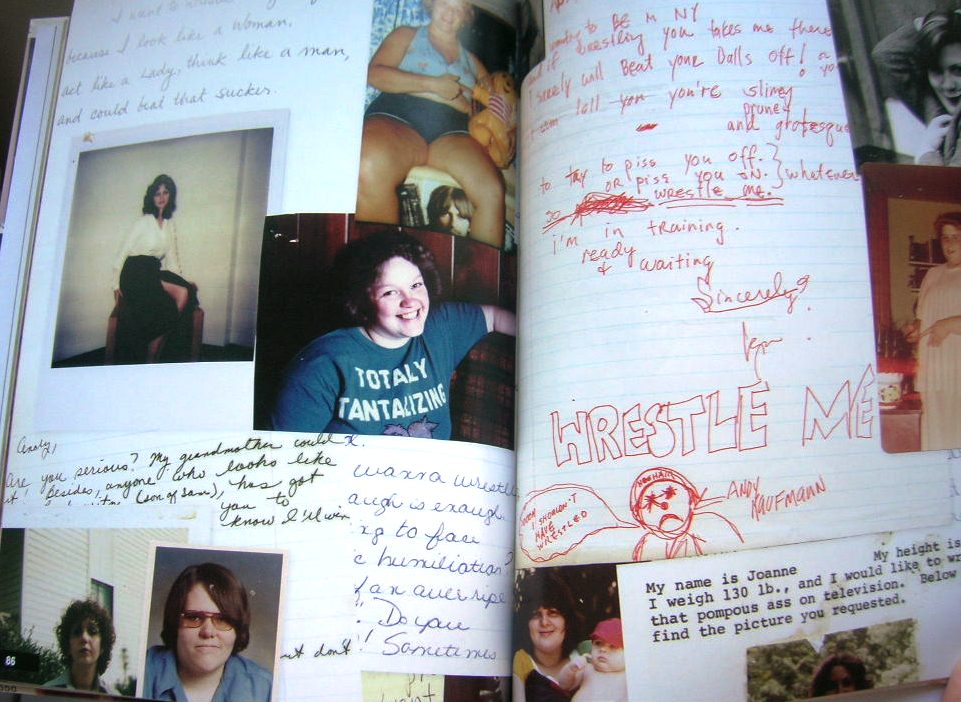 I want to
because I look like a woman,
act like a Lady, think like a man,
and could beat that sucker.
TOTALY
TANTALIZING
Andy,
Are you serious? My grandmother could
it! Besides, anyone who looks like
(son of Sam), has got
you to
know I'll win
x.
wanna wrestle
augh is enough.
ng to face
c humiliation?
"Do you
't don't! Sometimes
86
wanting to BE in NY
and if wrestling you takes me there
I surely will Beat your Balls off!
tell you you're slimey
pruney
and grotesque
to try to piss you off.
OR piss you ON. } whatever
so wrestle me.
i'm in training.
ready
& waiting
Sincerely,
WRESTLE ME
I SHOULDN'T
HAVE
WRESTLED
ANDY
KAUFMANN
My name is Joanne
My height is
I weigh 130 lb., and I would like to wr
that pompous ass on television. Below
find the picture you requested.